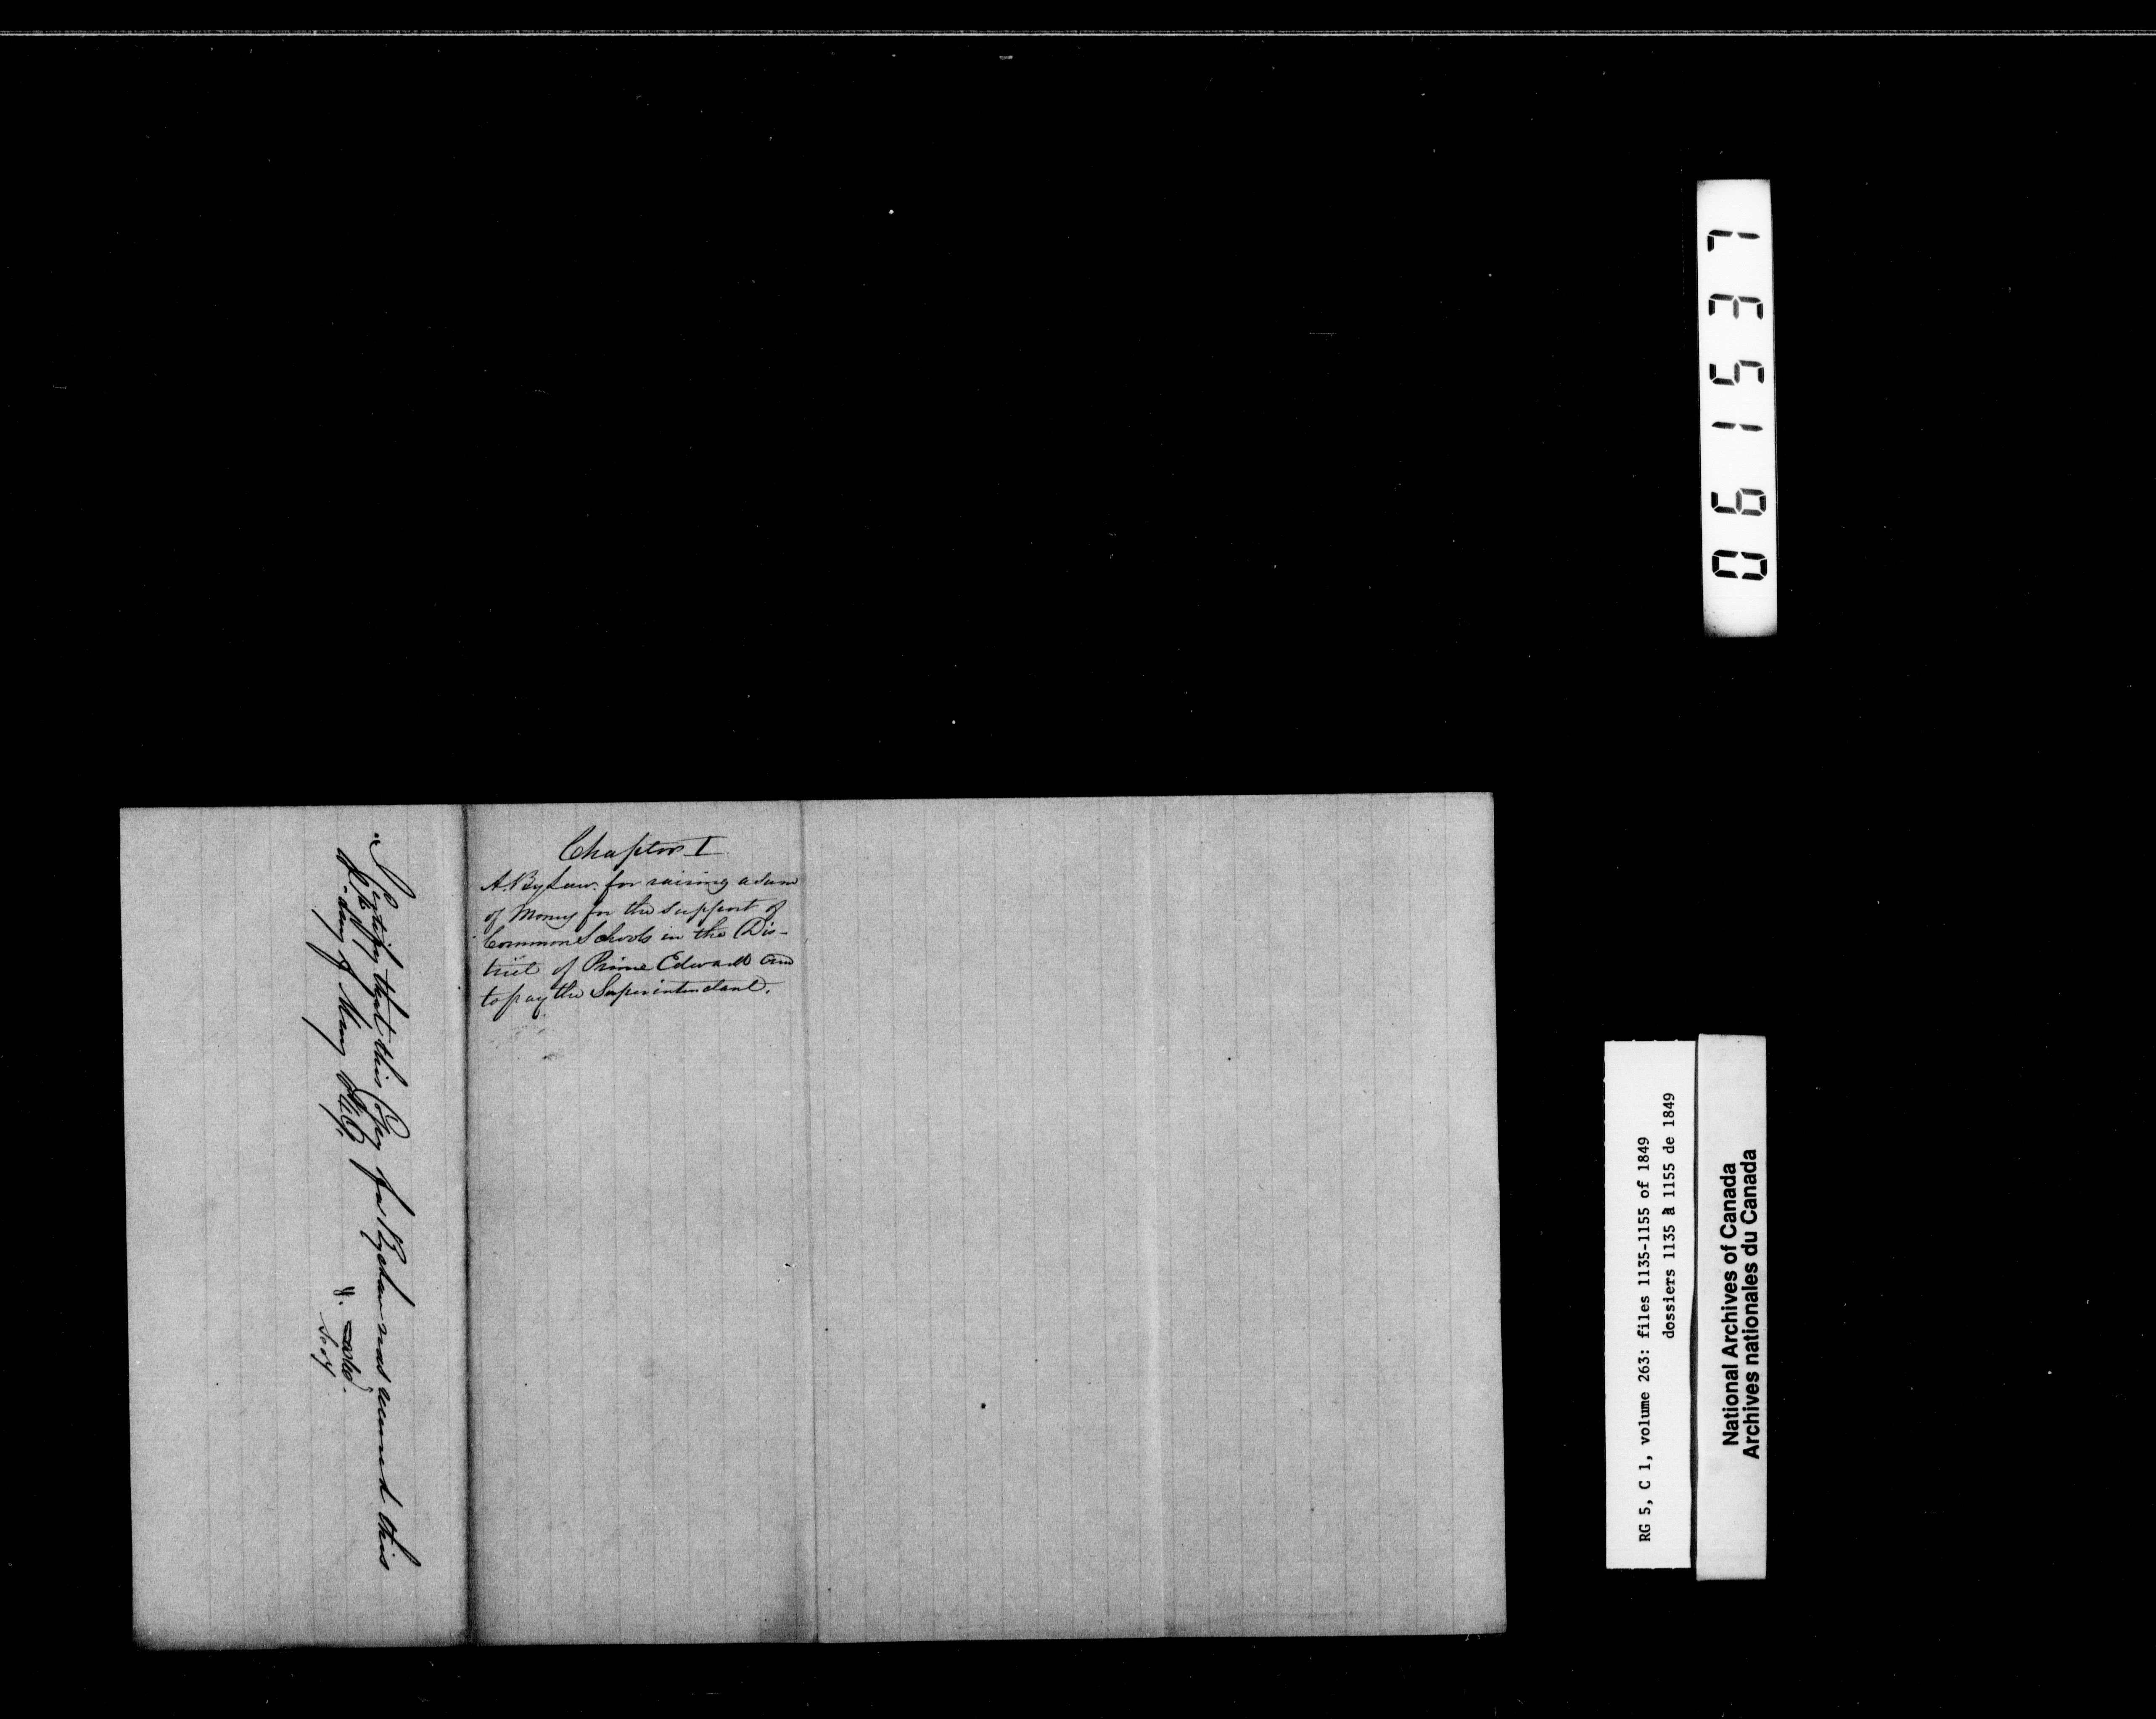 Chapter I
A. By Law. for raising a sum
of Money for the support of
Common Schools in the Dis-
trict of Prince Edward and
to pay the Superintendant.
I certify that this Copy of a By Law was received this
day of May 1849.
061537
RG 5, C 1, volume 263: files 1135-1155 of 1849
dossiers 1135 à 1155 de 1849
National Archives of Canada
Archives nationales du Canada